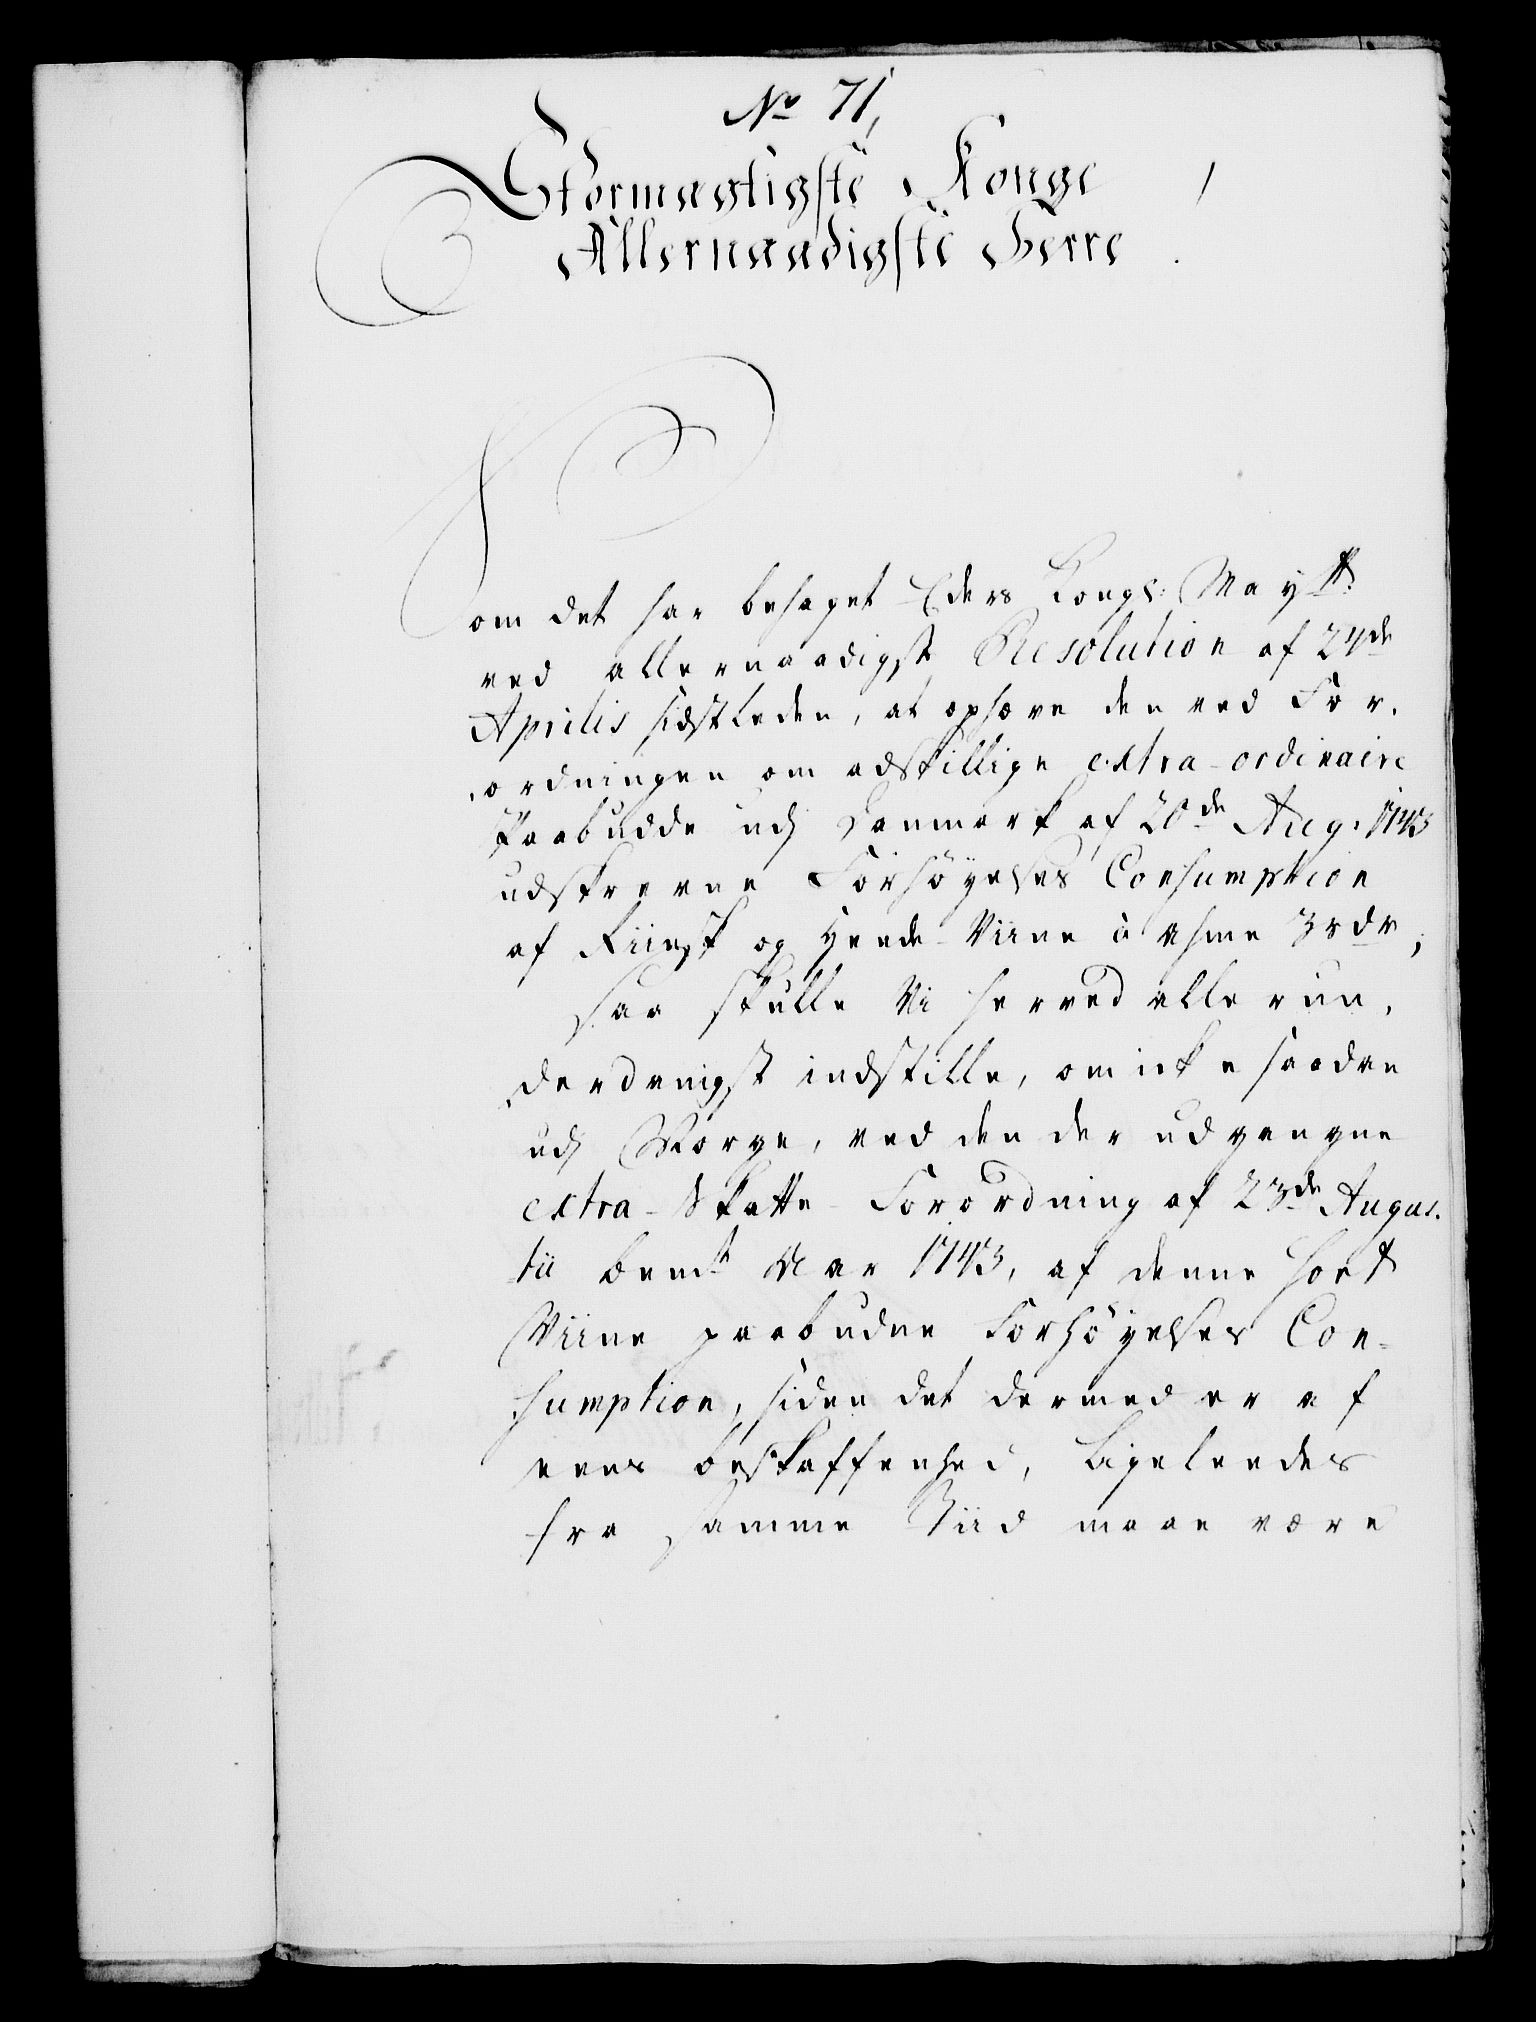 No 71,
Stormægtigste Konge
Allernaadigste Herre
Som det har behaget Eders Kongl: Mayts
ved allernaadigst Resolution af 24de
Aprilis sidstleden, at ophæve den ved For,
ordningen om adskillige extra-ordinaire
Paabudde udj Danmark af 20de Aug: 1743
udskrevne Forhøyelses Consumption
af Riinsk og Viine à Ahme 3 rdr,
saa skulle Vi herved allerun,
derdanigst indstille, om icke saadan
udj Norge, ved den der udgangne
extra-Skatte-Forordning af 23de Augus,
tii bemt Aar 1743, af denne Sort
Viine paabudne Forhøyelses Con-
sumption, siden det dermed er af
eens beskaffenhed, ligeleedes
fra samme Tiid maae være